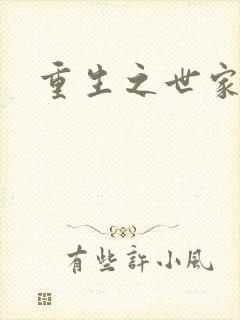 重生之世家
有些許小风